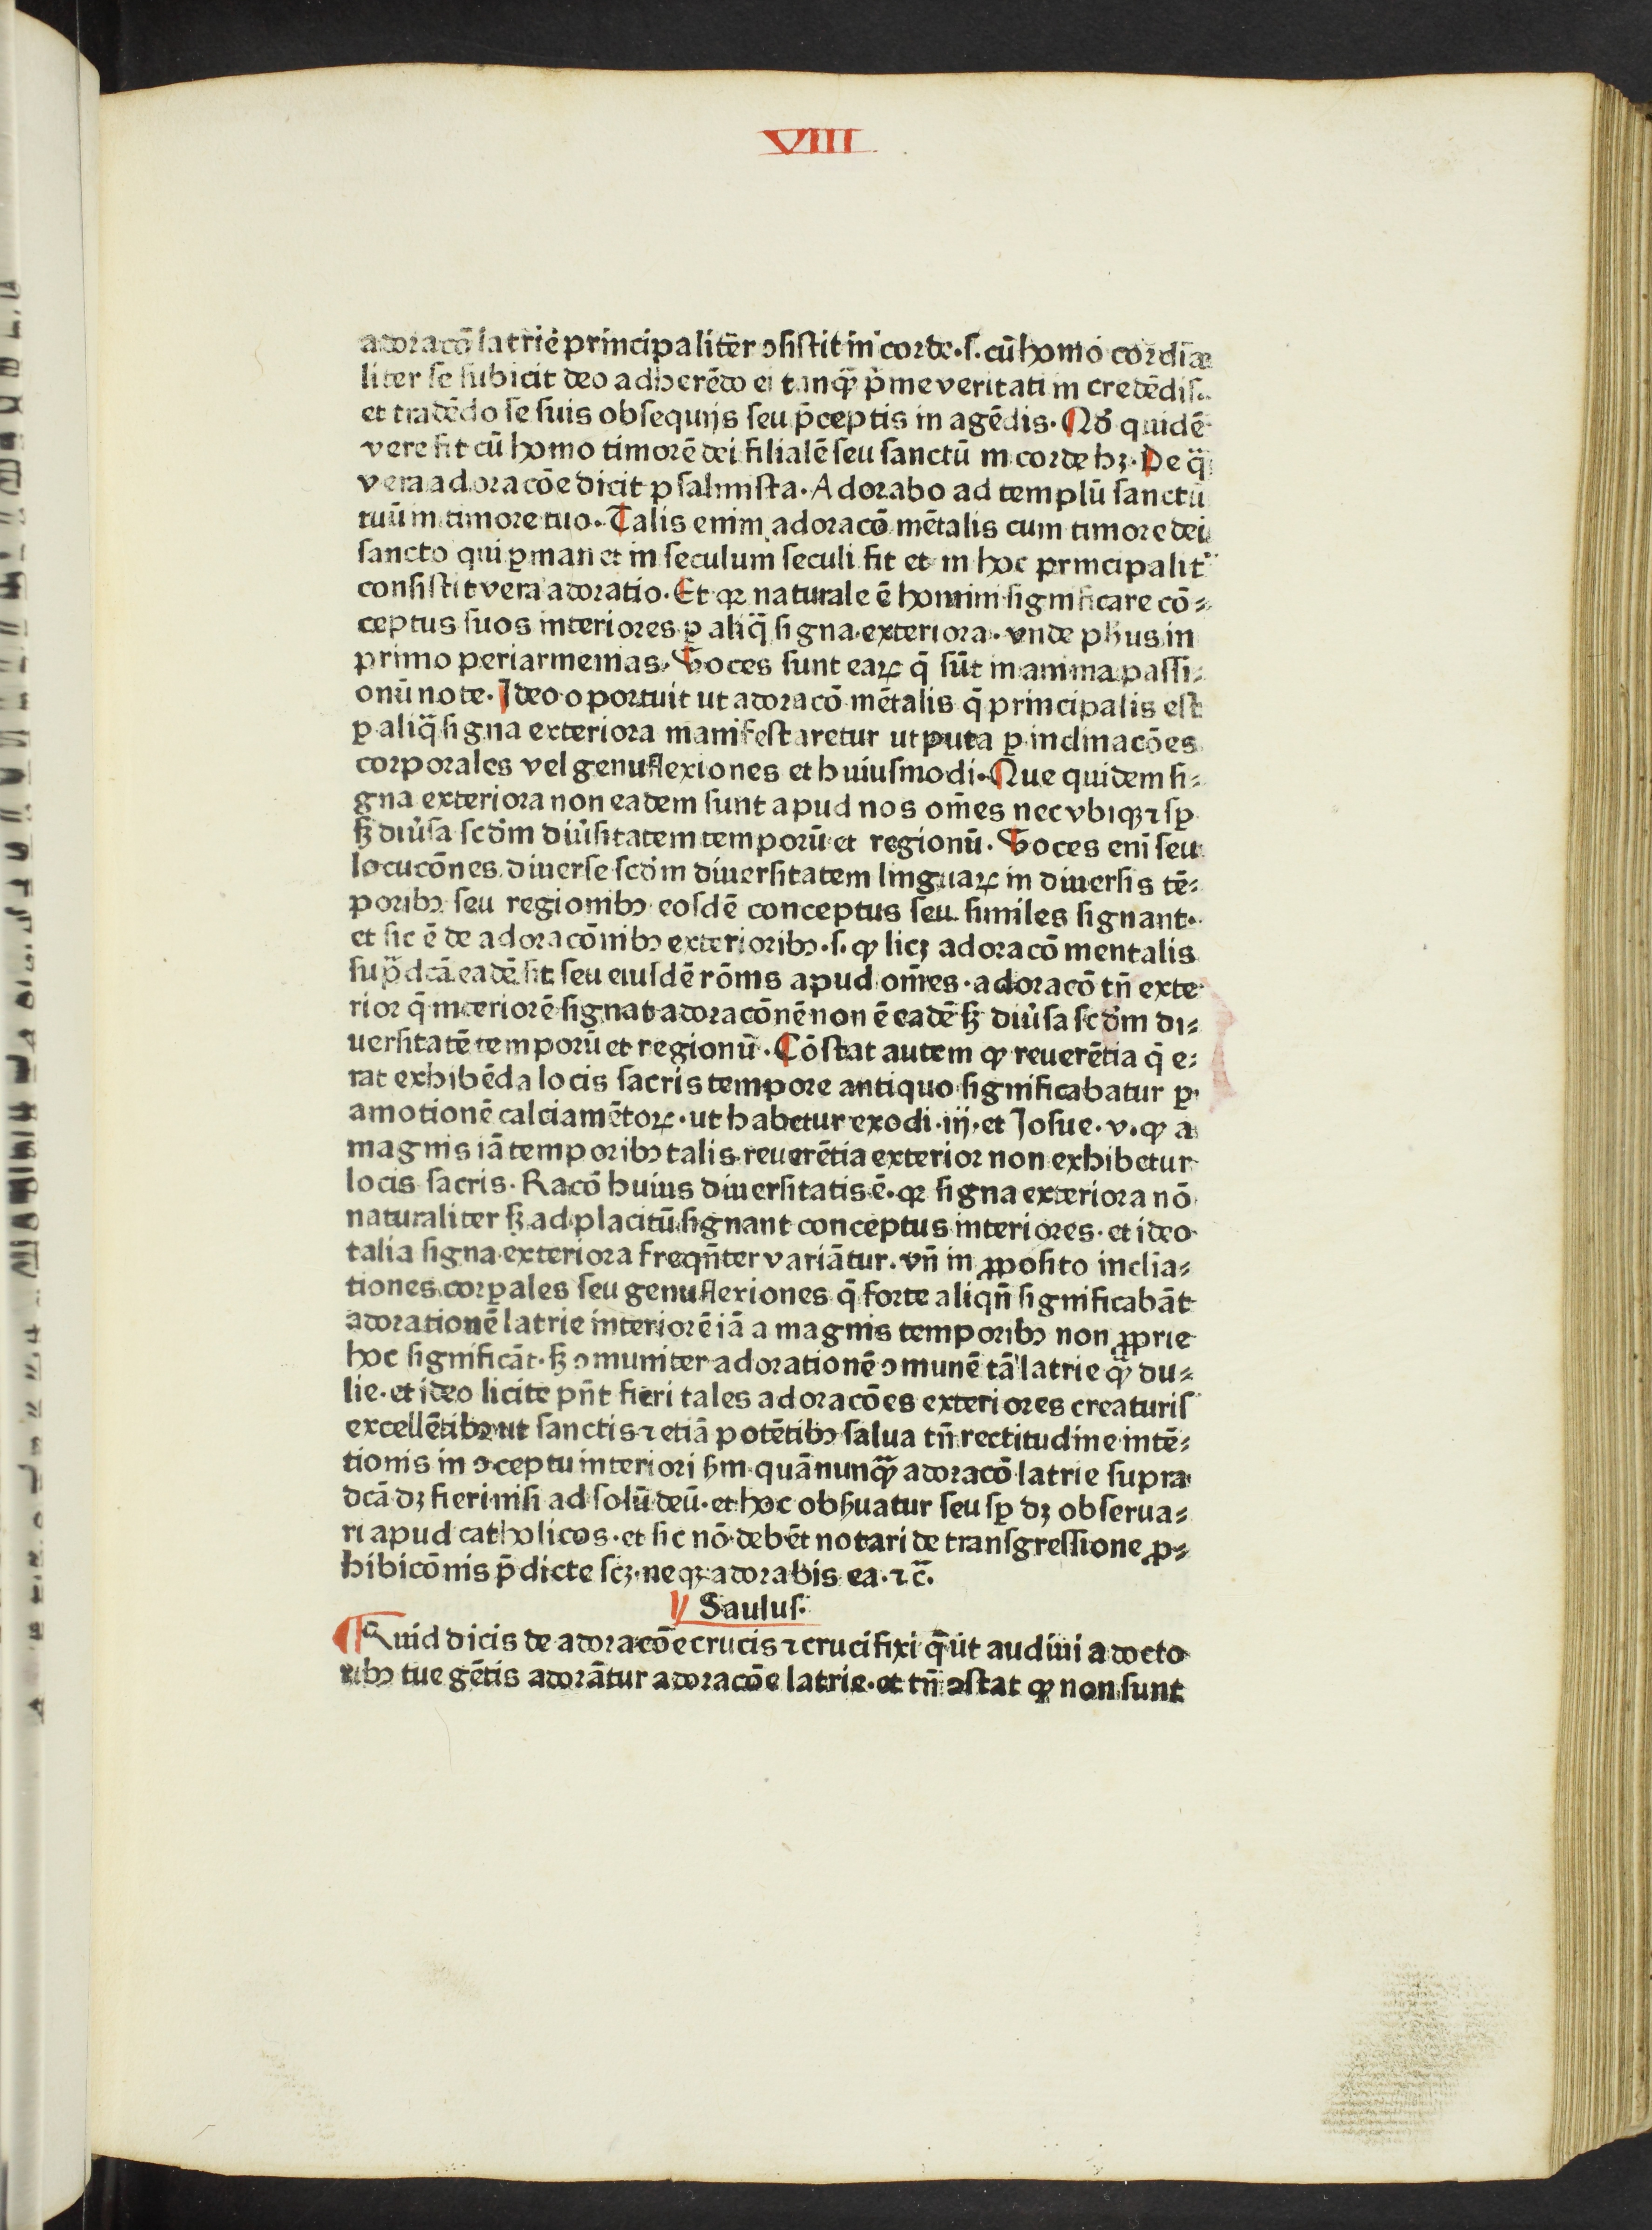 VIII
adoracō latrie principalit̄er ↄsistit in corde·s·cū homo cordia⸗
liter se subicit deo adherēdo ei tanq̄ p̄me veritati in credēdis·
et tradēdo se suis obsequijs seu p̄ceptis in agēdis· Qd̓ quidē
vere fit cū homo timorē dei filialē seu sanctū in corde hꝫ· De q̄
vera adoracōe dicit psalmista· Adorabo ad templū sanctū
tuū in timore tuo· Talis enim adoracō mētalis cum timore dei
sancto qui ꝑmanet in seculum seculi fit et in hoc principalit̓
consistit vera adoratio· Et qꝛ naturale ē homini significare cō⸗
ceptus suos interiores ꝑ aliq̄ signa exteriora· vnde ph̄us in
primo periarmenias· Voces sunt eaꝝ q̄ sūt in anima passi⸗
onū note· Ideo oportuit ut adoracō mētalis q̄ principalis est
ꝑ aliq̄ signa exteriora manifestaretur utputa ꝑ inclinacōes
corporales vel genuflexiones et huiusmodi· Que quidem si⸗
gna exteriora non eadem sunt apud nos om̄es nec vbiqꝫ ⁊ sꝑ
sꝫ diu̓sa scd̓m diu̓sitatem temporū et regionū· Voces eni seu
locucōnes diuerse scd̓m diuersitatem linguaꝝ in diuersis tē⸗
poribꝰ seu regionibꝰ eosdē conceptus seu similes signant·
et sic ē de adoracōnibꝰ exterioribꝰ·s·ꝙ licꝫ adoracō mentalis
sup̄dcā eadē sit seu eiusdē rōnis apud om̄es·adoracō tn̄ exte
rior q̄ interiorē signat adoracōnē non ē eadē sꝫ diu̓sa scd̓m di⸗
uersitatē temporū et regionū· Cōstat autem ꝙ reuerētia q̄ e⸗
rat exhibēda locis sacris tempore antiquo significabatur ꝑ
amotionē calciamētoꝝ·ut habetur exodi·iij·et Josue·v·ꝙ a
magnis iā temporibꝰ talis reuerētia exterior non exhibetur
locis sacris· Racō huius diuersitatis ē·qꝛ signa exteriora nō
naturaliter sꝫ ad placitū signant conceptus interiores·et ideo
talia signa exteriora freqn̄ter variātur·vn̄ in ꝓposito inclia⸗
tiones corꝑales seu genuflexiones q̄ forte aliqn̄ significabāt
adorationē latrie interiorē iā a magnis temporibꝰ non ꝓprie
hoc significāt·sꝫ ↄmuniter adorationē ↄmunē tā latrie q̄ du⸗
lie·et ideo licite pn̄t fieri tales adoracōes exteriores creaturis
excellētibꝰ ut sanctis ⁊ etiā potētibꝰ salua tn̄ rectitudine intē⸗
tionis in ↄceptu interiori sm̄ quā nunq̄ adoracō latrie supra
dcā dꝫ fieri nisi ad solū deū·et hoc obs̓uatur seu sꝑ dꝫ obserua⸗
ri apud catholicos·et sic nō debēt notari de transgressione ꝓ⸗
hibicōnis p̄dicte scꝫ·neqꝫ adorabis ea·⁊c̄.
Saulus·
Quid dicis de adoracōe crucis ⁊ crucifixi q̄ ut audiui a docto
ribꝰ tue gētis adorātur adoracōe latrie·et tn̄ ↄstat ꝙ non sunt